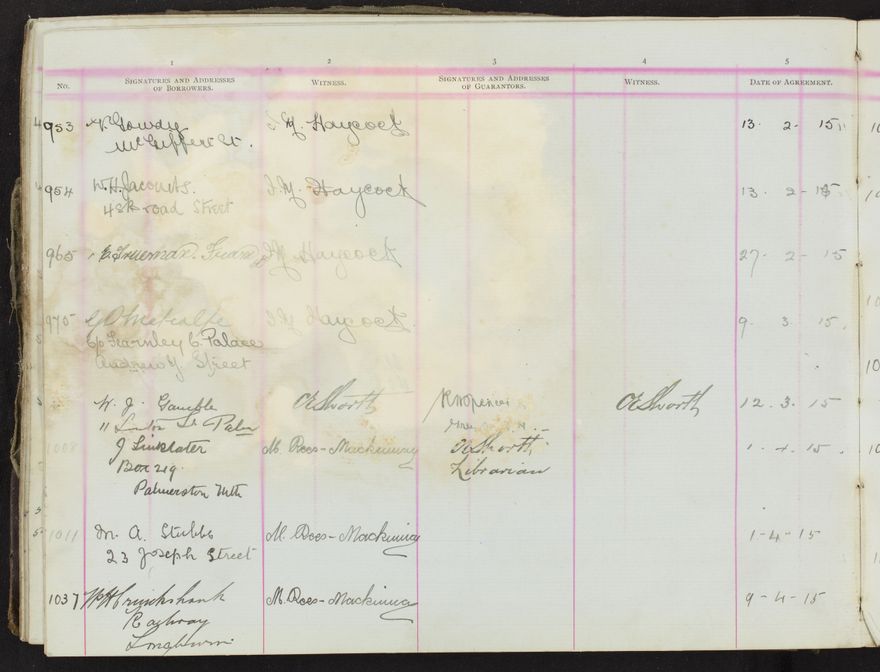 1 2 3 4 5
No. SIGNATURES AND ADDRESSES OF BORROWERS. WITNESS. SIGNATURES AND ADDRESSES OF GUARANTORS. WITNESS. DATE OF AGREEMENT.
953 Gowdy Haycock 13. 2. 15
St.
954 W.H. Haycock 13 2-15
road Street
965 Trueman Haycock 27. 2-15
975 Metcalfe Haycock 9. 3. 15.
c/o Fearnley C. Palace
Andrew Street
W. J. Gamble Worth Spencer Worth 12. 3. 15
11 St Palm
1008 J Linklater M. Rees-Mackinnon Worth 1. 4. 15.
Box 219 Librarian
Palmerston Nth
1011 M. A. Stubbs M. Rees-Mackinnon 1-4-15
23 Joseph Street
1037 Cruickshank M. Rees-Mackinnon 9-4-15
Railway
Longburn